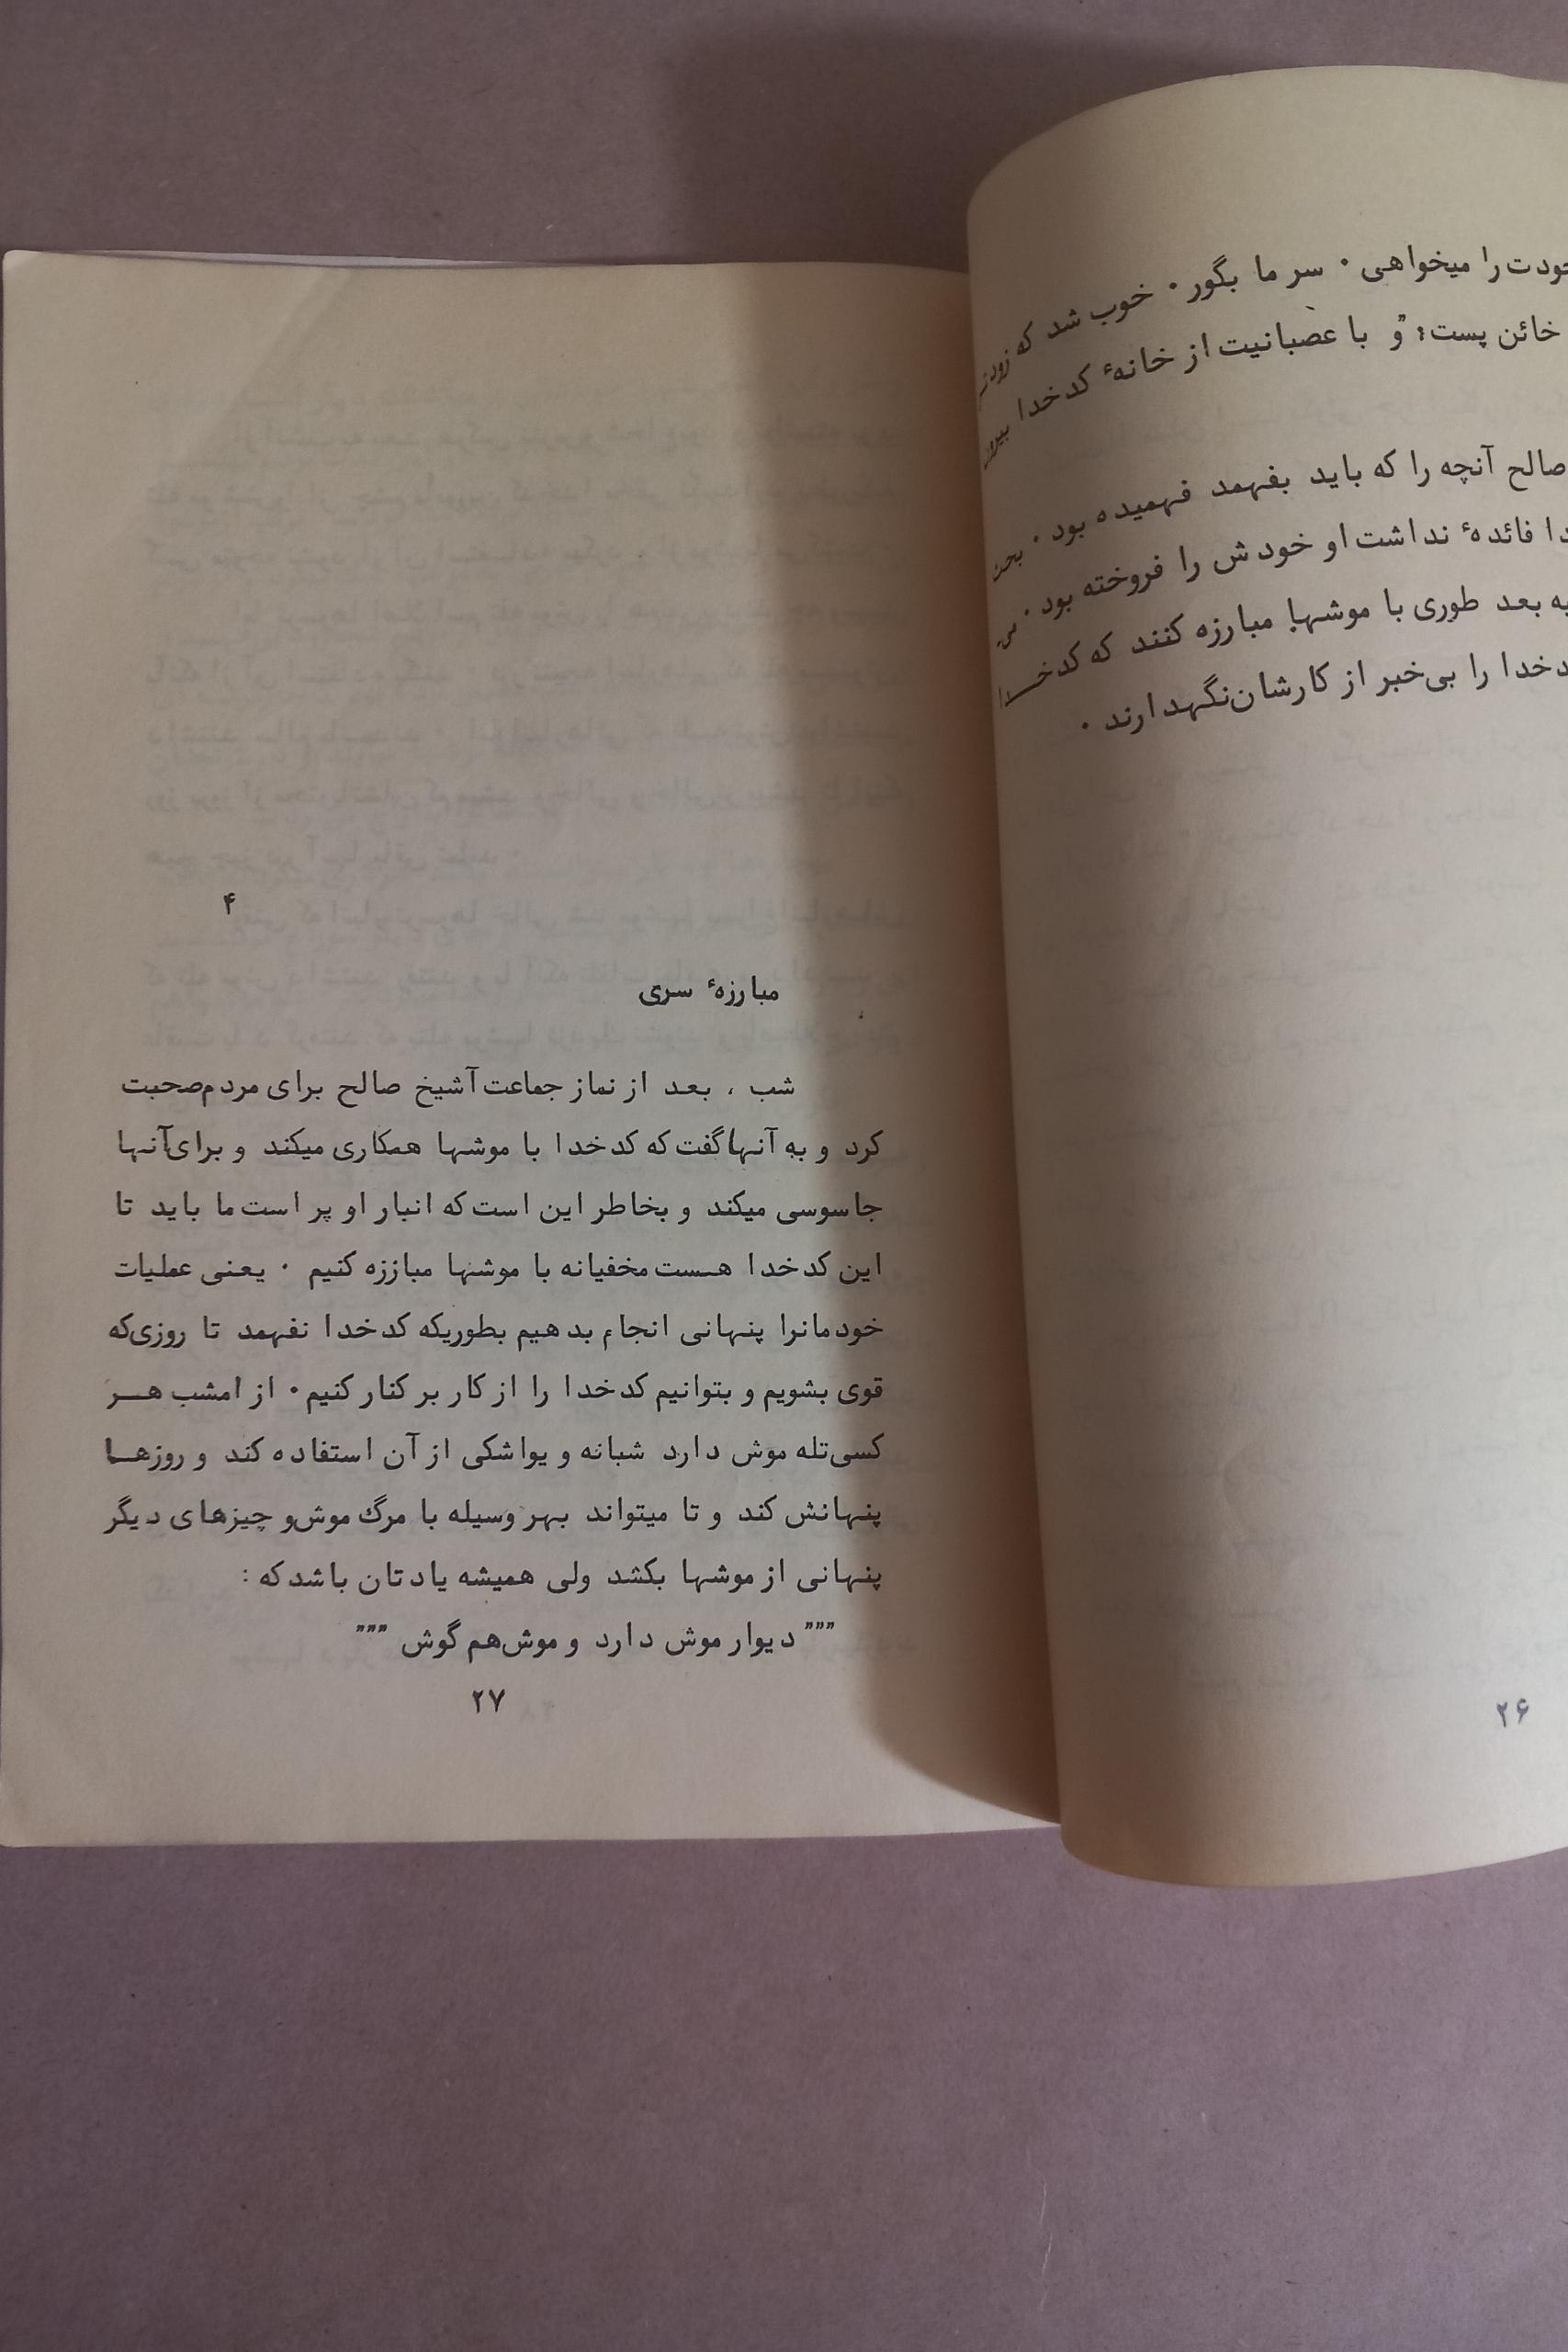 را میخواهی ۰ سر ما بگور ۰ خوب شد که
خائن پست؛ "و با عصبانیت از خانهٔ کدخدا
صالح آنچه را که باید بفهمد فهمیده بود ۰
فائدهٔ نداشت او خودش را فروخته بود ۰
به بعد طوری با موشها مبارزه کنند که کدخدا
را بی‌خبر از کارشان نگهدارند ۰
۲۶
۴
مبارزهٔ سری
شب ، بعد از نماز جماعت آشیخ صالح برای مردم صحبت
کرد و به آنها گفت که کدخدا با موشها همکاری میکند و برای آنها
جاسوسی میکند و بخاطر این است که انبار او پر است ما باید تا
این کدخدا هست مخفیانه با موشها مباززه کنیم ۰ یعنی عملیات
خودمانرا پنهانی انجام بدهیم بطوریکه کدخدا نفهمد تا روزی که
قوی بشویم و بتوانیم کدخدا را از کار بر کنار کنیم ۰ از امشب هر
کسی تله موش دارد شبانه و یواشکی از آن استفاده کند و روزها
پنهانش کند و تا میتواند بهر وسیله با مرگ موش و چیزهای دیگر
پنهانی از موشها بکشد ولی همیشه یادتان باشد که :
"""دیوار موش دارد و موش هم گوش """
۲۷